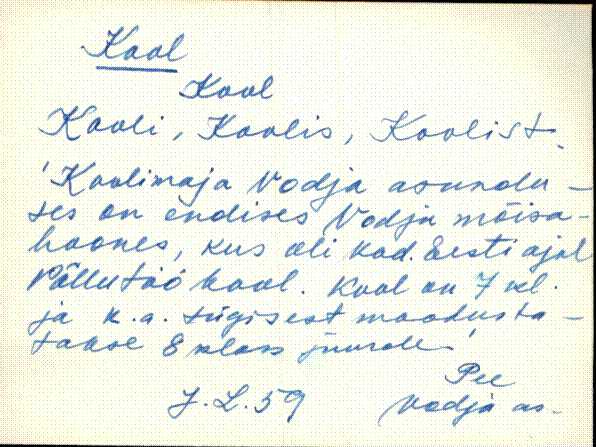 Kool
Kool
Kooli, Koolis, Koolist.
'Koolimaja Vodja asundu-
ses on endises Vodja mõisa-
hoones, kus oli kod. Eesti ajal
Põllutöö kool. Kool on 7 kl.
ja k.a. sügisest moodusta-
takse 8 klass juurde'
Pee
J. L. 59
Vodja as.